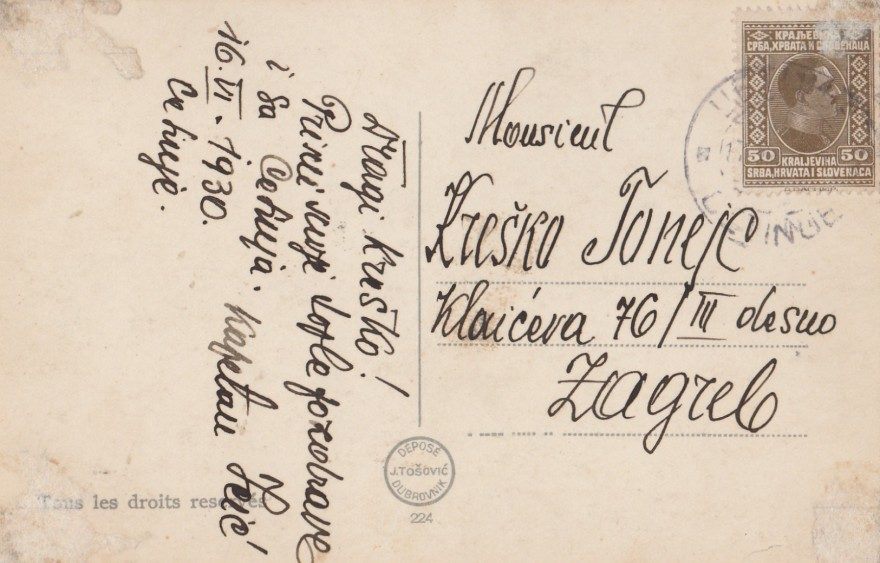 Dragi Kreško!
Primi moje tople pozdrave
i sa Cetinja. Kapetan
16. VI. 1930.
Cetinje.
Monsieur
Kreško Tonejc
Klaićeva 76/III desno
Zagreb
КРАЉЕВИНА
СРБА, ХРВАТА И СЛОВЕНАЦА
50 KRALJEVINA 50
SRBA, HRVATA I SLOVENACA
DÉPOSÉ
J. TOŠOVIĆ
DUBROVNIK
224
Tous les droits reservés